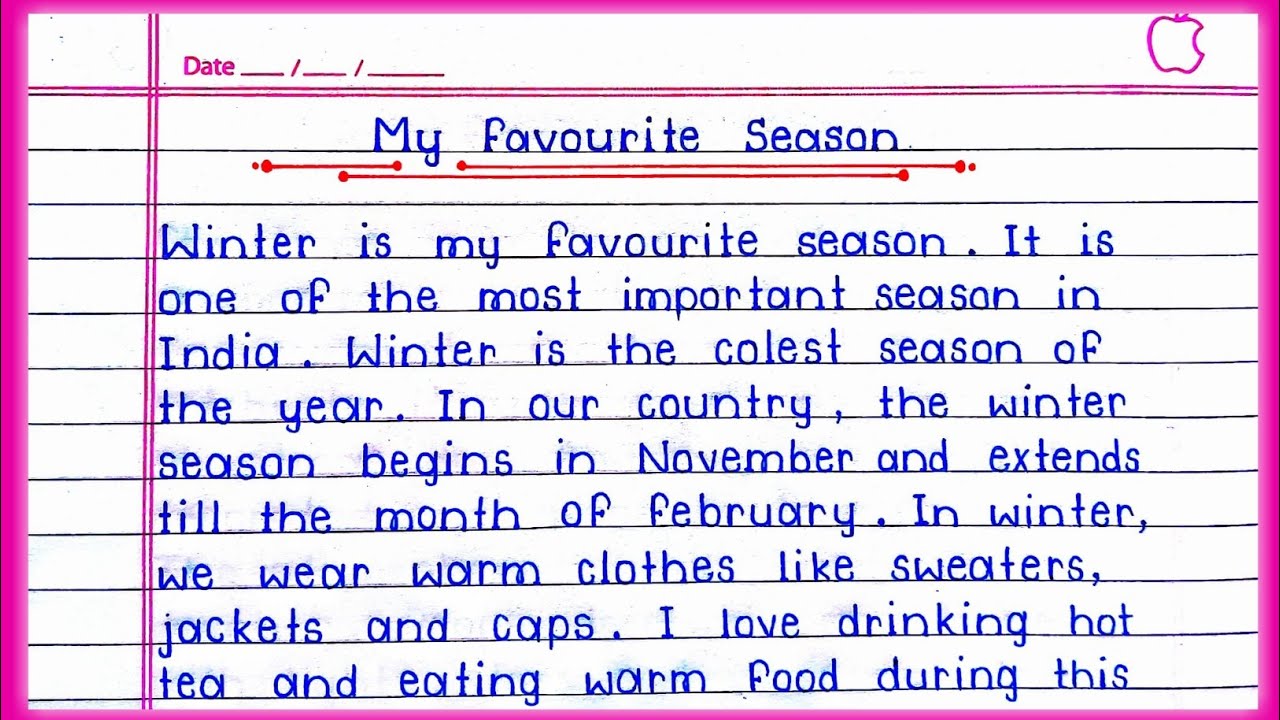 Date ___ /___ /_____
My Favourite Season
Winter is my favourite season. It is
one of the most important season in
India. Winter is the colest season of
the year. In our country, the winter
season begins in November and extends
till the month of February. In winter,
we wear warm clothes like sweaters,
jackets and caps. I love drinking hot
tea and eating warm food during this